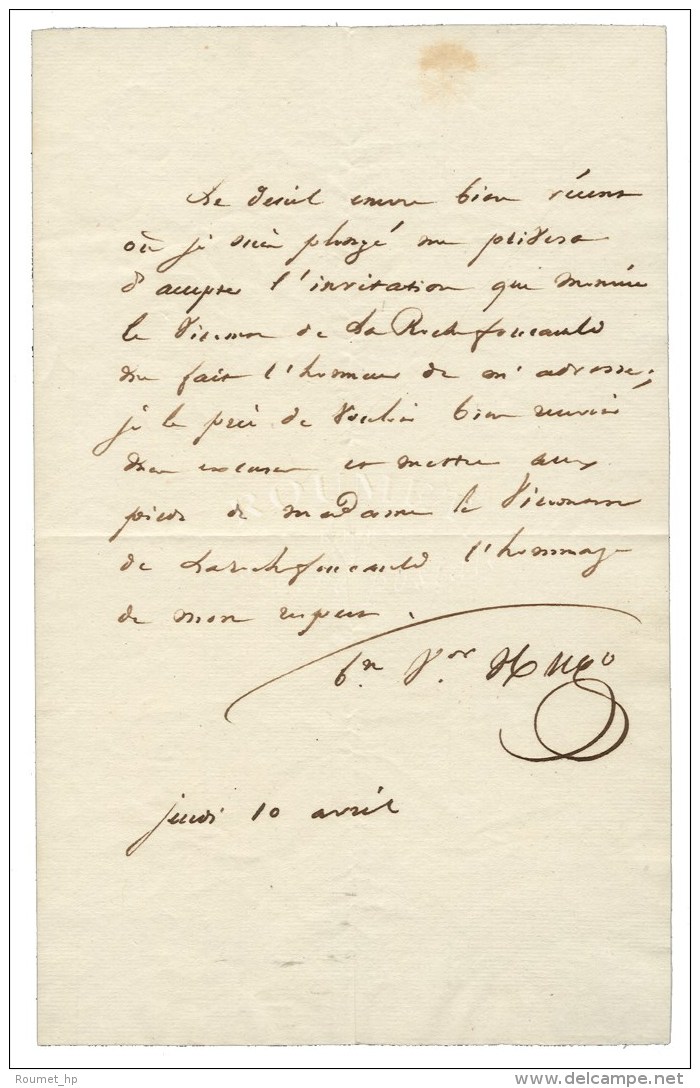 Le deuil encore bien récent
où je suis plongé me privera
d'accepter l'invitation que Monsieur
le Vicomte de La Rochefoucauld
me fait l'honneur de m'adresser ;
je le prie de vouloir bien recevoir
mes excuses et mettre aux
pieds de Madame la Vicomtesse
de Larochefoucauld l'hommage
de mon respect.
Bn Vor Hugo
jeudi 10 avril
Roumet_hp
delcampe.net